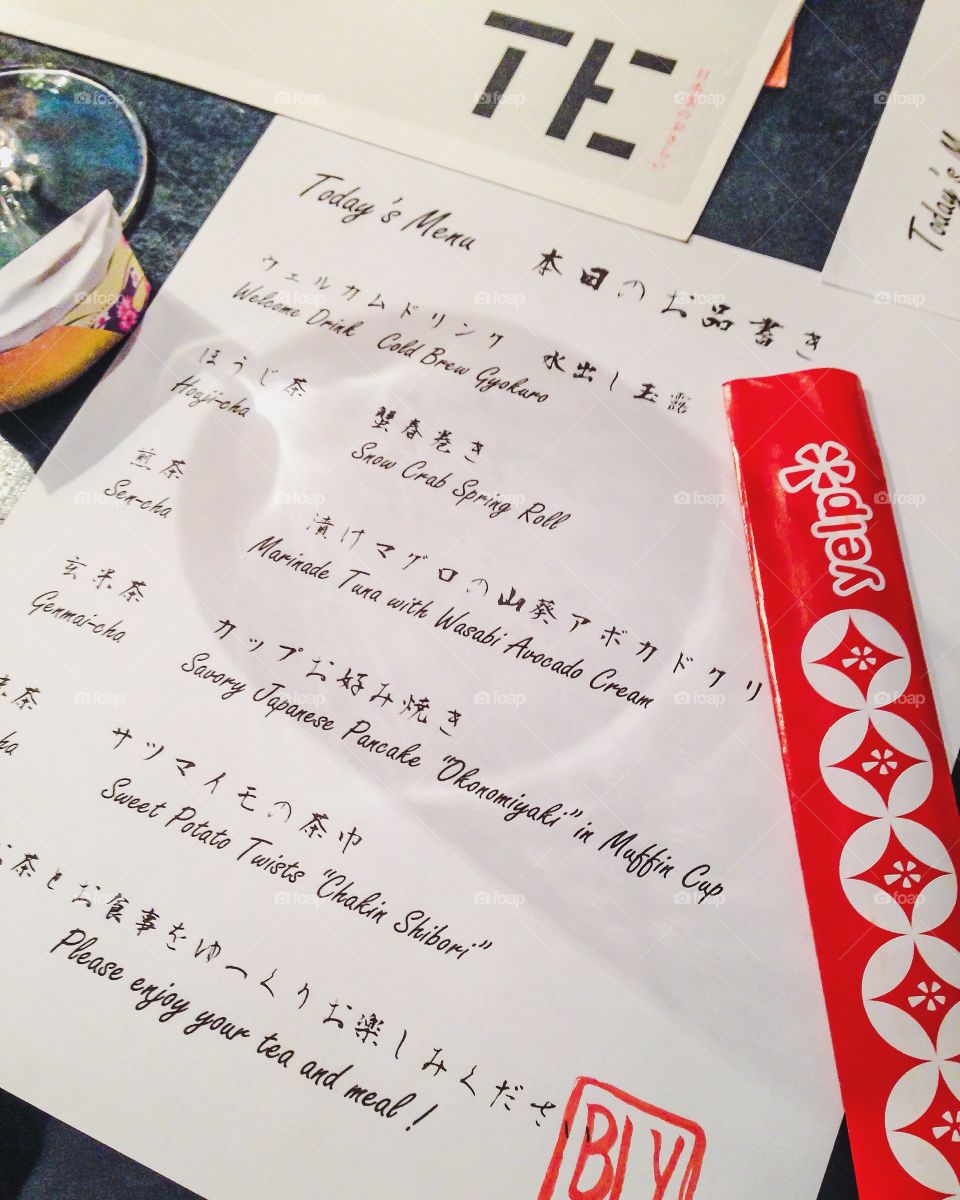 TE
Today's Menu 本日のお品書き
ウェルカムドリンク 水出し玉露
Welcome Drink Cold Brew Gyokuro
ほうじ茶
Houji-cha
蟹春巻き
Snow Crab Spring Roll
煎茶
Sen-cha
漬けマグロの山葵アボカドクリ
Marinade Tuna with Wasabi Avocado Cream
玄米茶
Genmai-cha
カップお好み焼き
Savory Japanese Pancake "Okonomiyaki" in Muffin Cup
茶
cha
サツマイモの茶巾
Sweet Potato Twists "Chakin Shibori"
お茶とお食事をゆっくりお楽しみくださ
Please enjoy your tea and meal!
BLY
yelp
Today's M